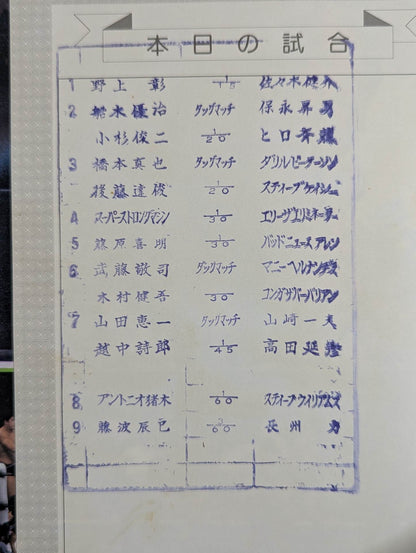 本日の試合
1 野上 彰 1/15 佐々木健介
2 船木優治 タッグマッチ 保永昇男
小杉俊二 1/20 ヒロ斉藤
3 橋本真也 タッグマッチ ダリルピーターソン
後藤達俊 1/20 スティーブケイシー
4 スーパーストロングマシン 1/30 エリーザエリミネーター
5 藤原喜明 1/30 バッドニュースアレン
6 武藤敬司 タッグマッチ マニーヘルナンデス
木村健吾 1/30 コンガザバーバリアン
7 山田恵一 タッグマッチ 山崎一夫
越中詩郎 1/45 高田延彦
8 アントニオ猪木 1/60 スティーブウイリアムス
9 藤波辰巳 1/60 長州 力